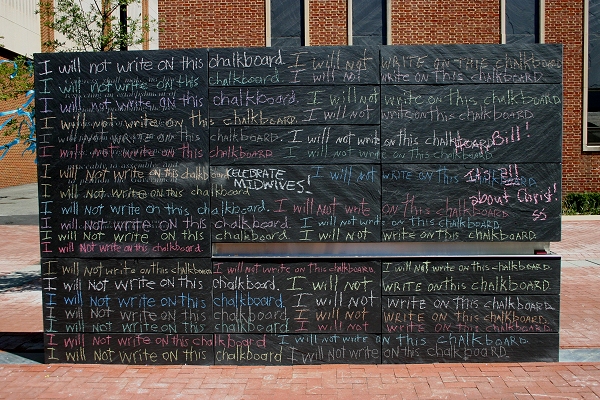 I will not write on this chalkboard. I will not WRITE ON THIS CHALKBOARD.
I will not write on this chalkboard. I will not write on this chalkboard.
I will not write on this chalkboard. I will not write on this chalkboard.
I will not write on this chalkboard. I will not write on this chalkboard.
I will not write on this chalkboard. I will not write on this chalkboard.
I will not write on this chalkboard. I will not write on this chalkboard.
Bill!
I will Not Write on this chalkboard I will Not write on this chalkboard.
CELEBRATE
MIDWIVES!
about Christ!
SS
I will Not Write on this chalkboard
I will Not Write on this chalkboard. I will Not write on this chalkboard.
I will Not Write on this chalkboard. I will Not write on this chalkboard.
I will Not Write on this chalkboard. I will Not write on this chalkboard.
I will Not Write on this chalkboard
I will Not Write on this chalkboard. I will not write on this chalkboard. I will not write on this chalkboard.
I will Not Write on this chalkboard. I will Not write on this chalkboard.
I will Not Write on this chalkboard. I will Not write on this chalkboard.
I will Not Write on this chalkboard. I will Not write on this chalkboard.
I will Not Write on this chalkboard. I will Not write on this chalkboard.
I will Not Write on this chalkboard I will not write on this chalkboard.
I will Not Write on this chalkboard I will Not write on this chalkboard.